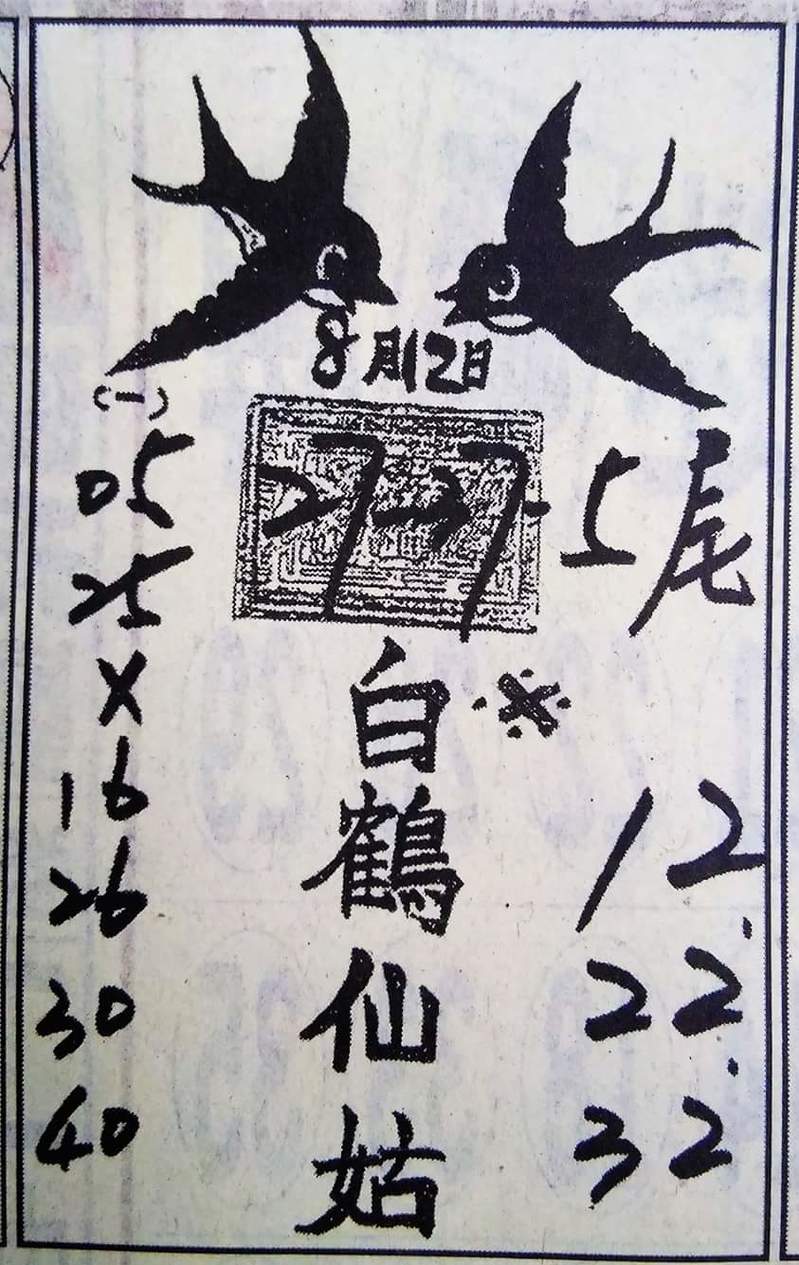 8月12日
(一)
27→7-5尾
05
25
X
16
26
30
40
白鶴仙姑
※
12.
22.
32